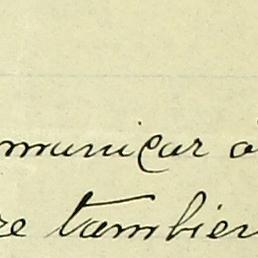 municar a
re tambien